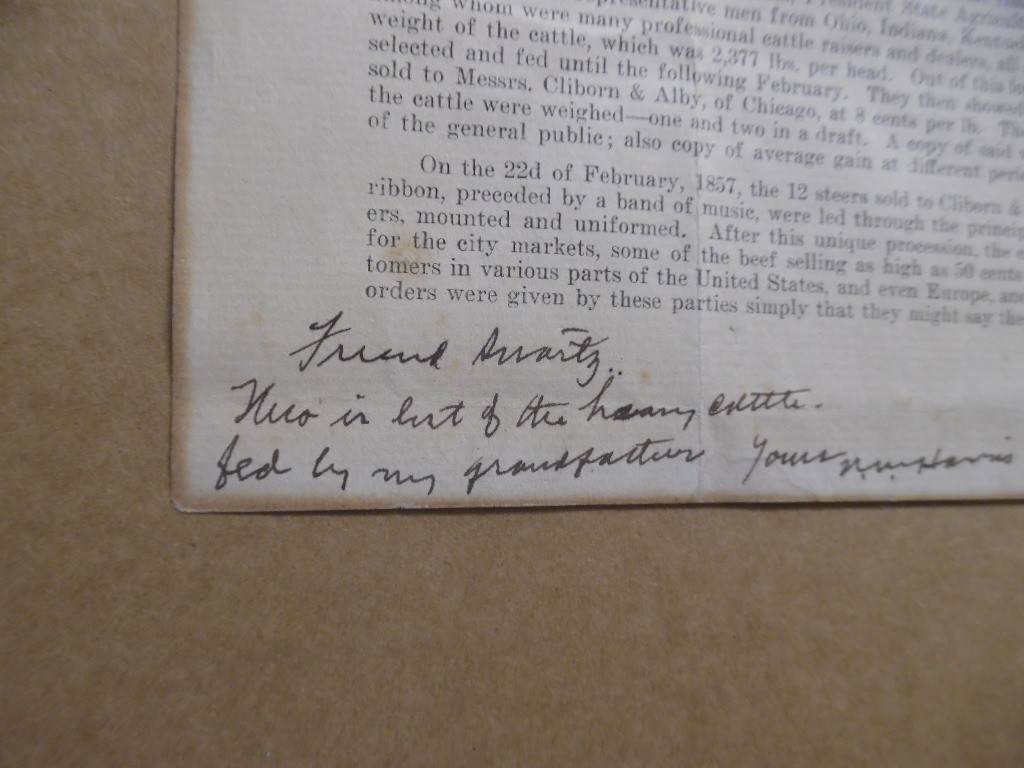 President State Agricul
among whom were many representative men from Ohio, Indiana, Kentuc
weight of the cattle, which was 2,377 lbs. per head. Out of this lo
selected and fed until the following February. They then showed
sold to Messrs. Cliborn & Alby, of Chicago, at 8 cents per lb. The
the cattle were weighed—one and two in a draft. A copy of said
of the general public; also copy of average gain at different peri
On the 22d of February, 1857, the 12 steers sold to Cliborn &
ribbon, preceded by a band of music, were led through the princip
ers, mounted and uniformed. After this unique procession, the
for the city markets, some of the beef selling as high as 50 cents
tomers in various parts of the United States, and even Europe, and
orders were given by these parties simply that they might say the
Friend Swartz..
Here is list of the heavy cattle.
fed by my grandfather Yours Harris